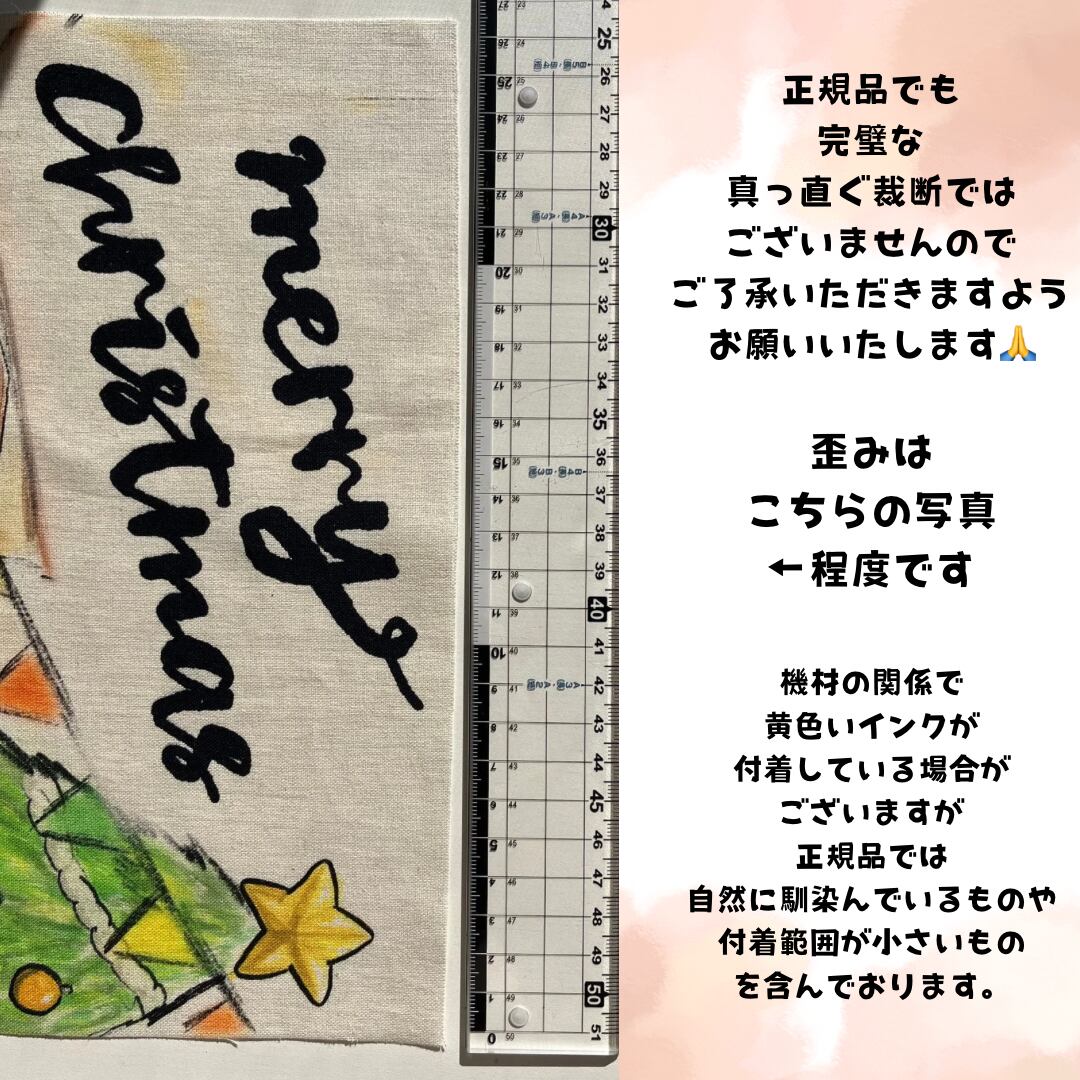 merry
christmas
正規品でも
完璧な
真っ直ぐ裁断では
ございませんので
ご了承いただきますよう
お願いいたします🙏
歪みは
こちらの写真
←程度です
機材の関係で
黄色いインクが
付着している場合が
ございますが
正規品では
自然に馴染んでいるものや
付着範囲が小さいもの
を含んでおります。
25
26
27
28
29
30
31
32
33
34
35
36
37
38
39
40
41
42
43
44
45
46
47
48
49
50
51